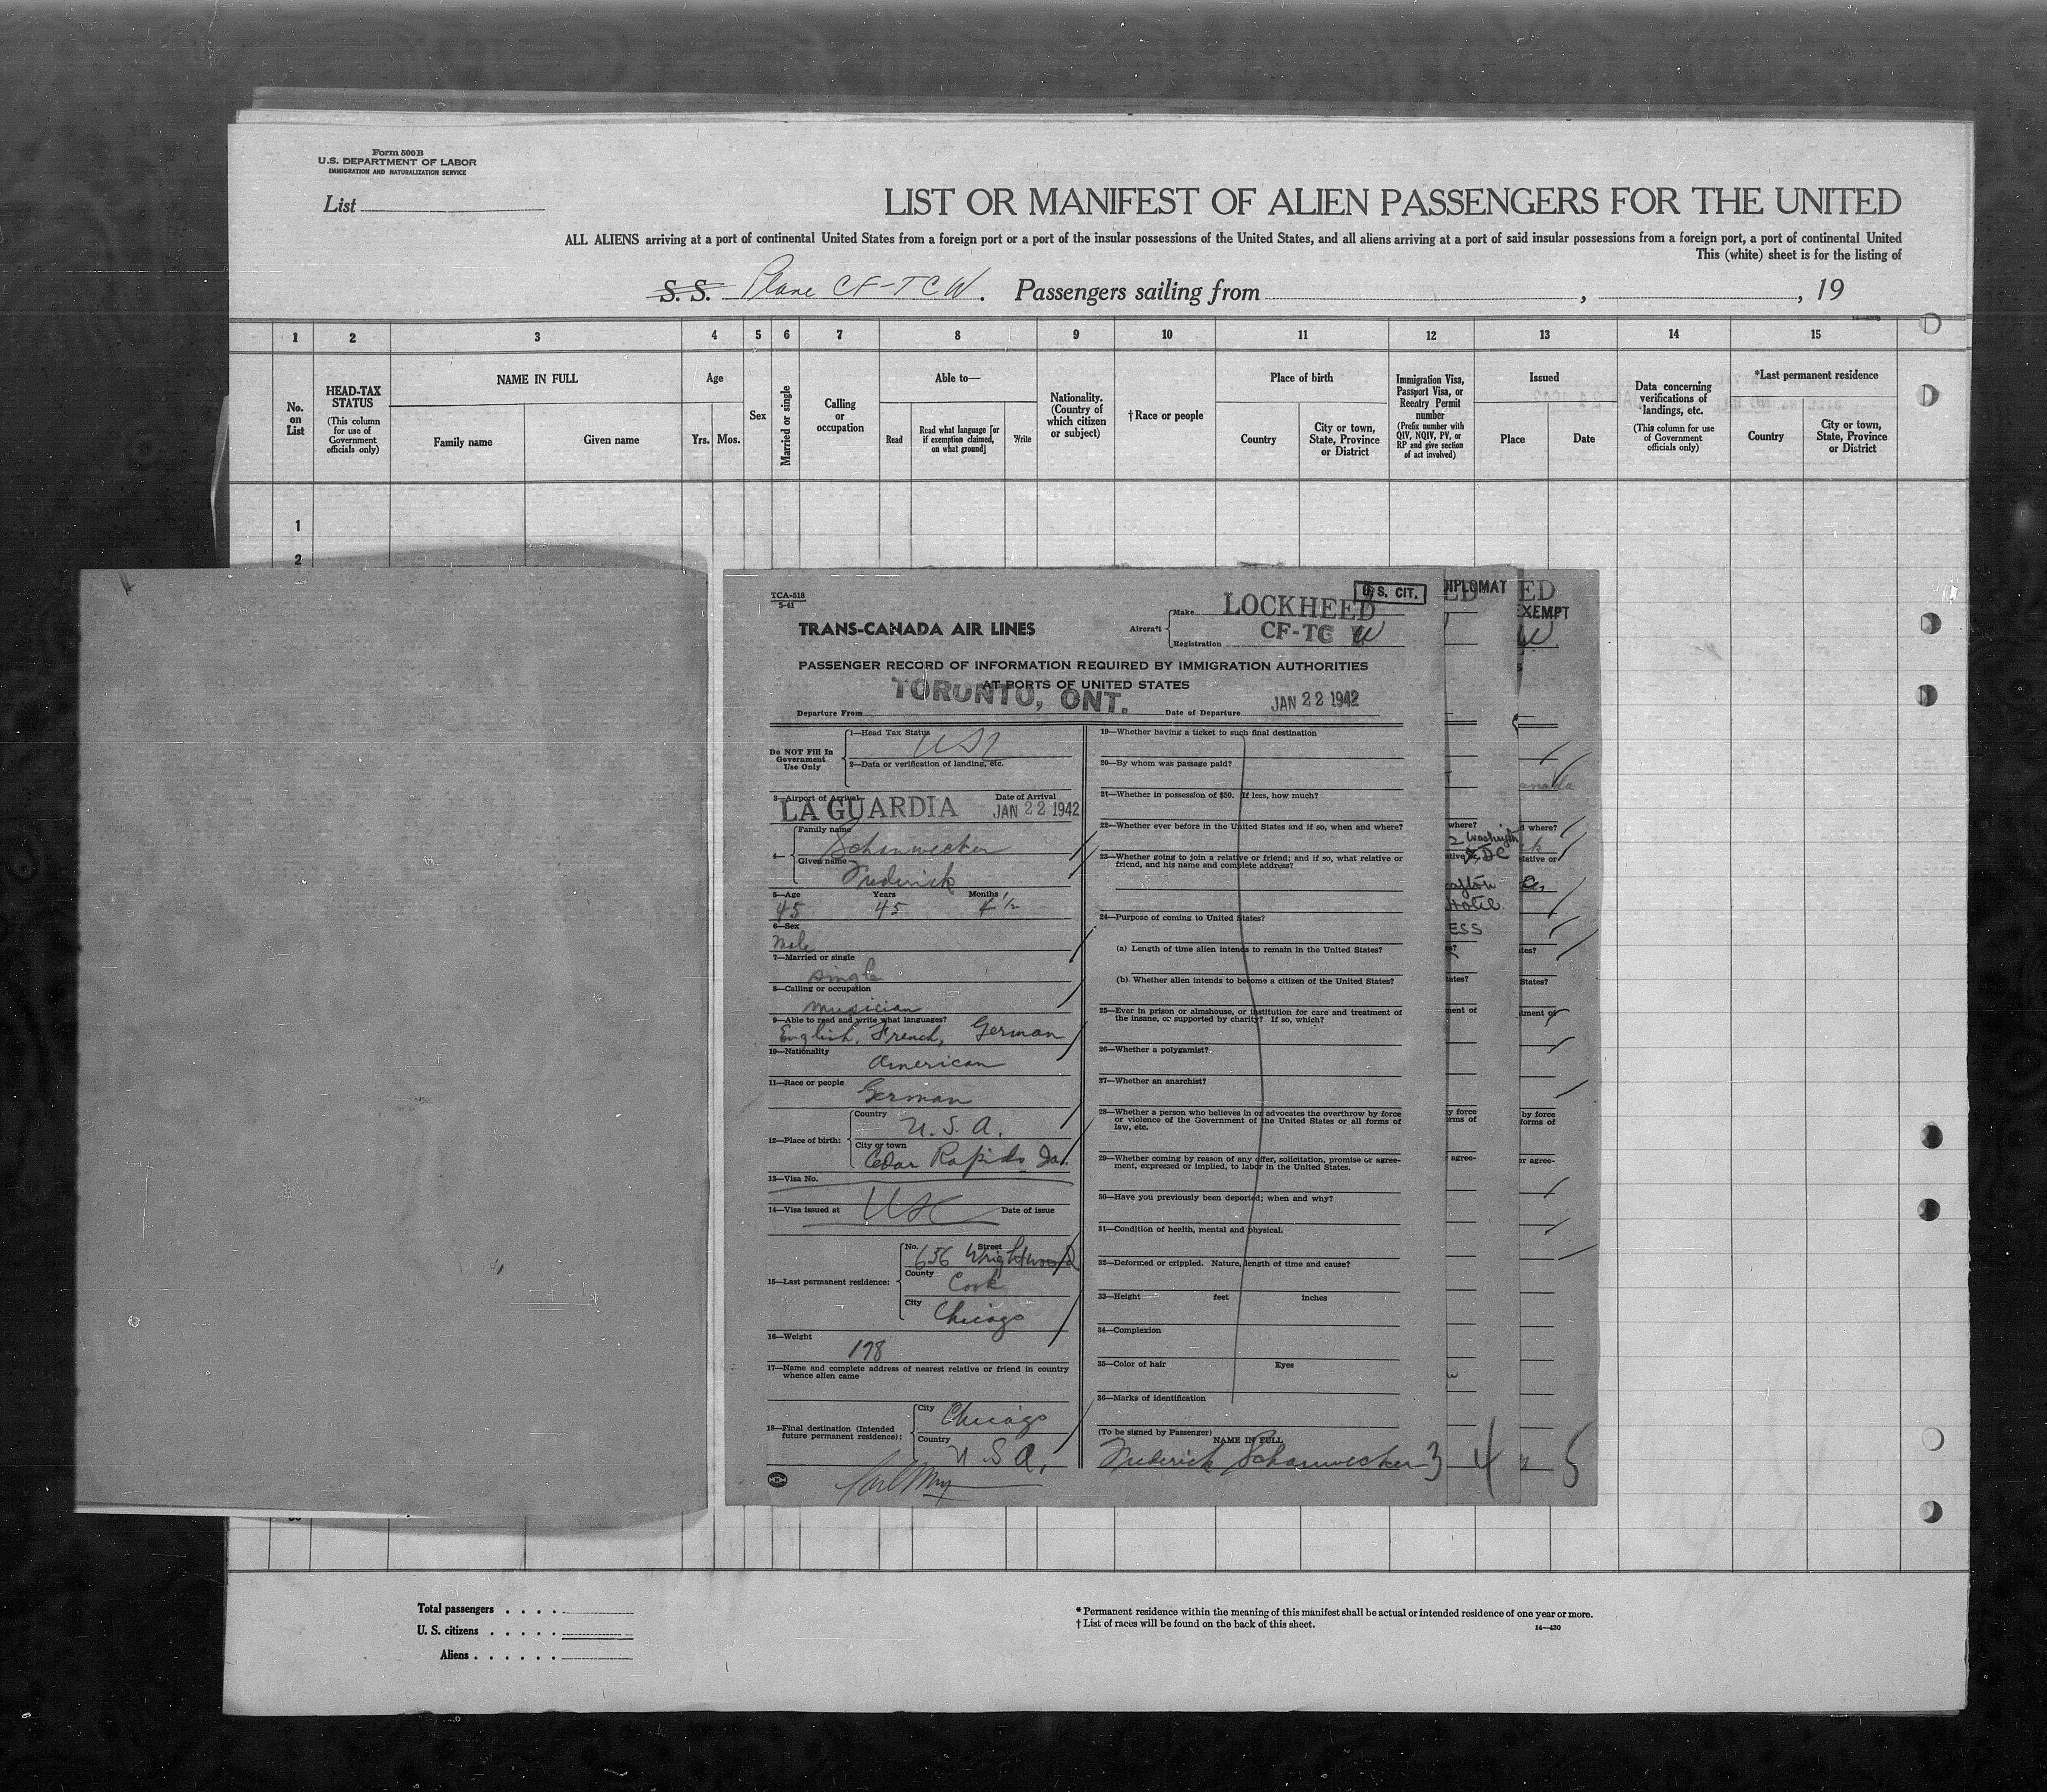 Form 500B
U.S. DEPARTMENT OF LABOR
IMMIGRATION AND NATURALIZATION SERVICE
List
LIST OR MANIFEST OF ALIEN PASSENGERS FOR THE UNITED
ALL ALIENS arriving at a port of continental United States from a foreign port or a port of the insular possessions of the United States, and all aliens arriving at a port of said insular possessions from a foreign port, a port of continental United
This (white) sheet is for the listing of
S. S. Plane CF-TCW. Passengers sailing from , , 19
1 2 3 4 5 6 7 8 9 10 11 12 13 14 15
No. on List
HEAD-TAX STATUS
(This column for use of Government officials only)
NAME IN FULL
Family name
Given name
Age
Yrs. Mos.
Sex
Married or single
Calling or occupation
Able to—
Read
Read what language [or if exemption claimed, on what ground]
Write
Nationality. (Country of which citizen or subject)
†Race or people
Place of birth
Country
City or town, State, Province or District
Immigration Visa, Passport Visa, or Reentry Permit number
(Prefix number with QIV, NQIV, PV, or RP and give section of act involved)
Issued
Place
Date
Data concerning verifications of landings, etc.
(This column for use of Government officials only)
*Last permanent residence
Country
City or town, State, Province or District
1
2
TCA-518
5-41
TRANS-CANADA AIR LINES
Aircraft
Make LOCKHEED
Registration CF-TC W
U. S. CIT.
DIPLOMAT
EXEMPT
PASSENGER RECORD OF INFORMATION REQUIRED BY IMMIGRATION AUTHORITIES
AT PORTS OF UNITED STATES
Departure From TORONTO, ONT.
Date of Departure JAN 22 1942
Do NOT Fill In Government Use Only
1—Head Tax Status
2—Data or verification of landing, etc.
3—Airport of Arrival LA GUARDIA
Date of Arrival JAN 22 1942
4— Family name Schauwecker
Given name Frederick
5—Age 45 Years 45 Months 4 1/2
6—Sex
Male
7—Married or single
single
8—Calling or occupation
musician
9—Able to read and write what languages?
English, French, German
10—Nationality
American
11—Race or people
German
12—Place of birth:
Country
U. S. A.
City or town
Cedar Rapids Ia.
13—Visa No.
14—Visa issued at USC Date of issue
15—Last permanent residence:
No. Street
656 Wrightwood
County
Cook
City
Chicago
16—Weight
178
17—Name and complete address of nearest relative or friend in country whence alien came
18—Final destination (Intended future permanent residence):
City
Chicago
Country
U S A.
19—Whether having a ticket to such final destination
20—By whom was passage paid?
21—Whether in possession of $50. If less, how much?
22—Whether ever before in the United States and if so, when and where?
23—Whether going to join a relative or friend; and if so, what relative or friend, and his name and complete address?
24—Purpose of coming to United States?
(a) Length of time alien intends to remain in the United States?
(b) Whether alien intends to become a citizen of the United States?
25—Ever in prison or almshouse, or institution for care and treatment of the insane, or supported by charity? If so, which?
26—Whether a polygamist?
27—Whether an anarchist?
28—Whether a person who believes in or advocates the overthrow by force or violence of the Government of the United States or all forms of law, etc.
29—Whether coming by reason of any offer, solicitation, promise or agreement, expressed or implied, to labor in the United States.
30—Have you previously been deported; when and why?
31—Condition of health, mental and physical.
32—Deformed or crippled. Nature, length of time and cause?
33—Height feet inches
34—Complexion
35—Color of hair Eyes
36—Marks of identification
(To be signed by Passenger)
NAME IN FULL
Frederick Schauwecker 3 4 5
Total passengers
U. S. citizens
Aliens
* Permanent residence within the meaning of this manifest shall be actual or intended residence of one year or more.
† List of races will be found on the back of this sheet.
14—430